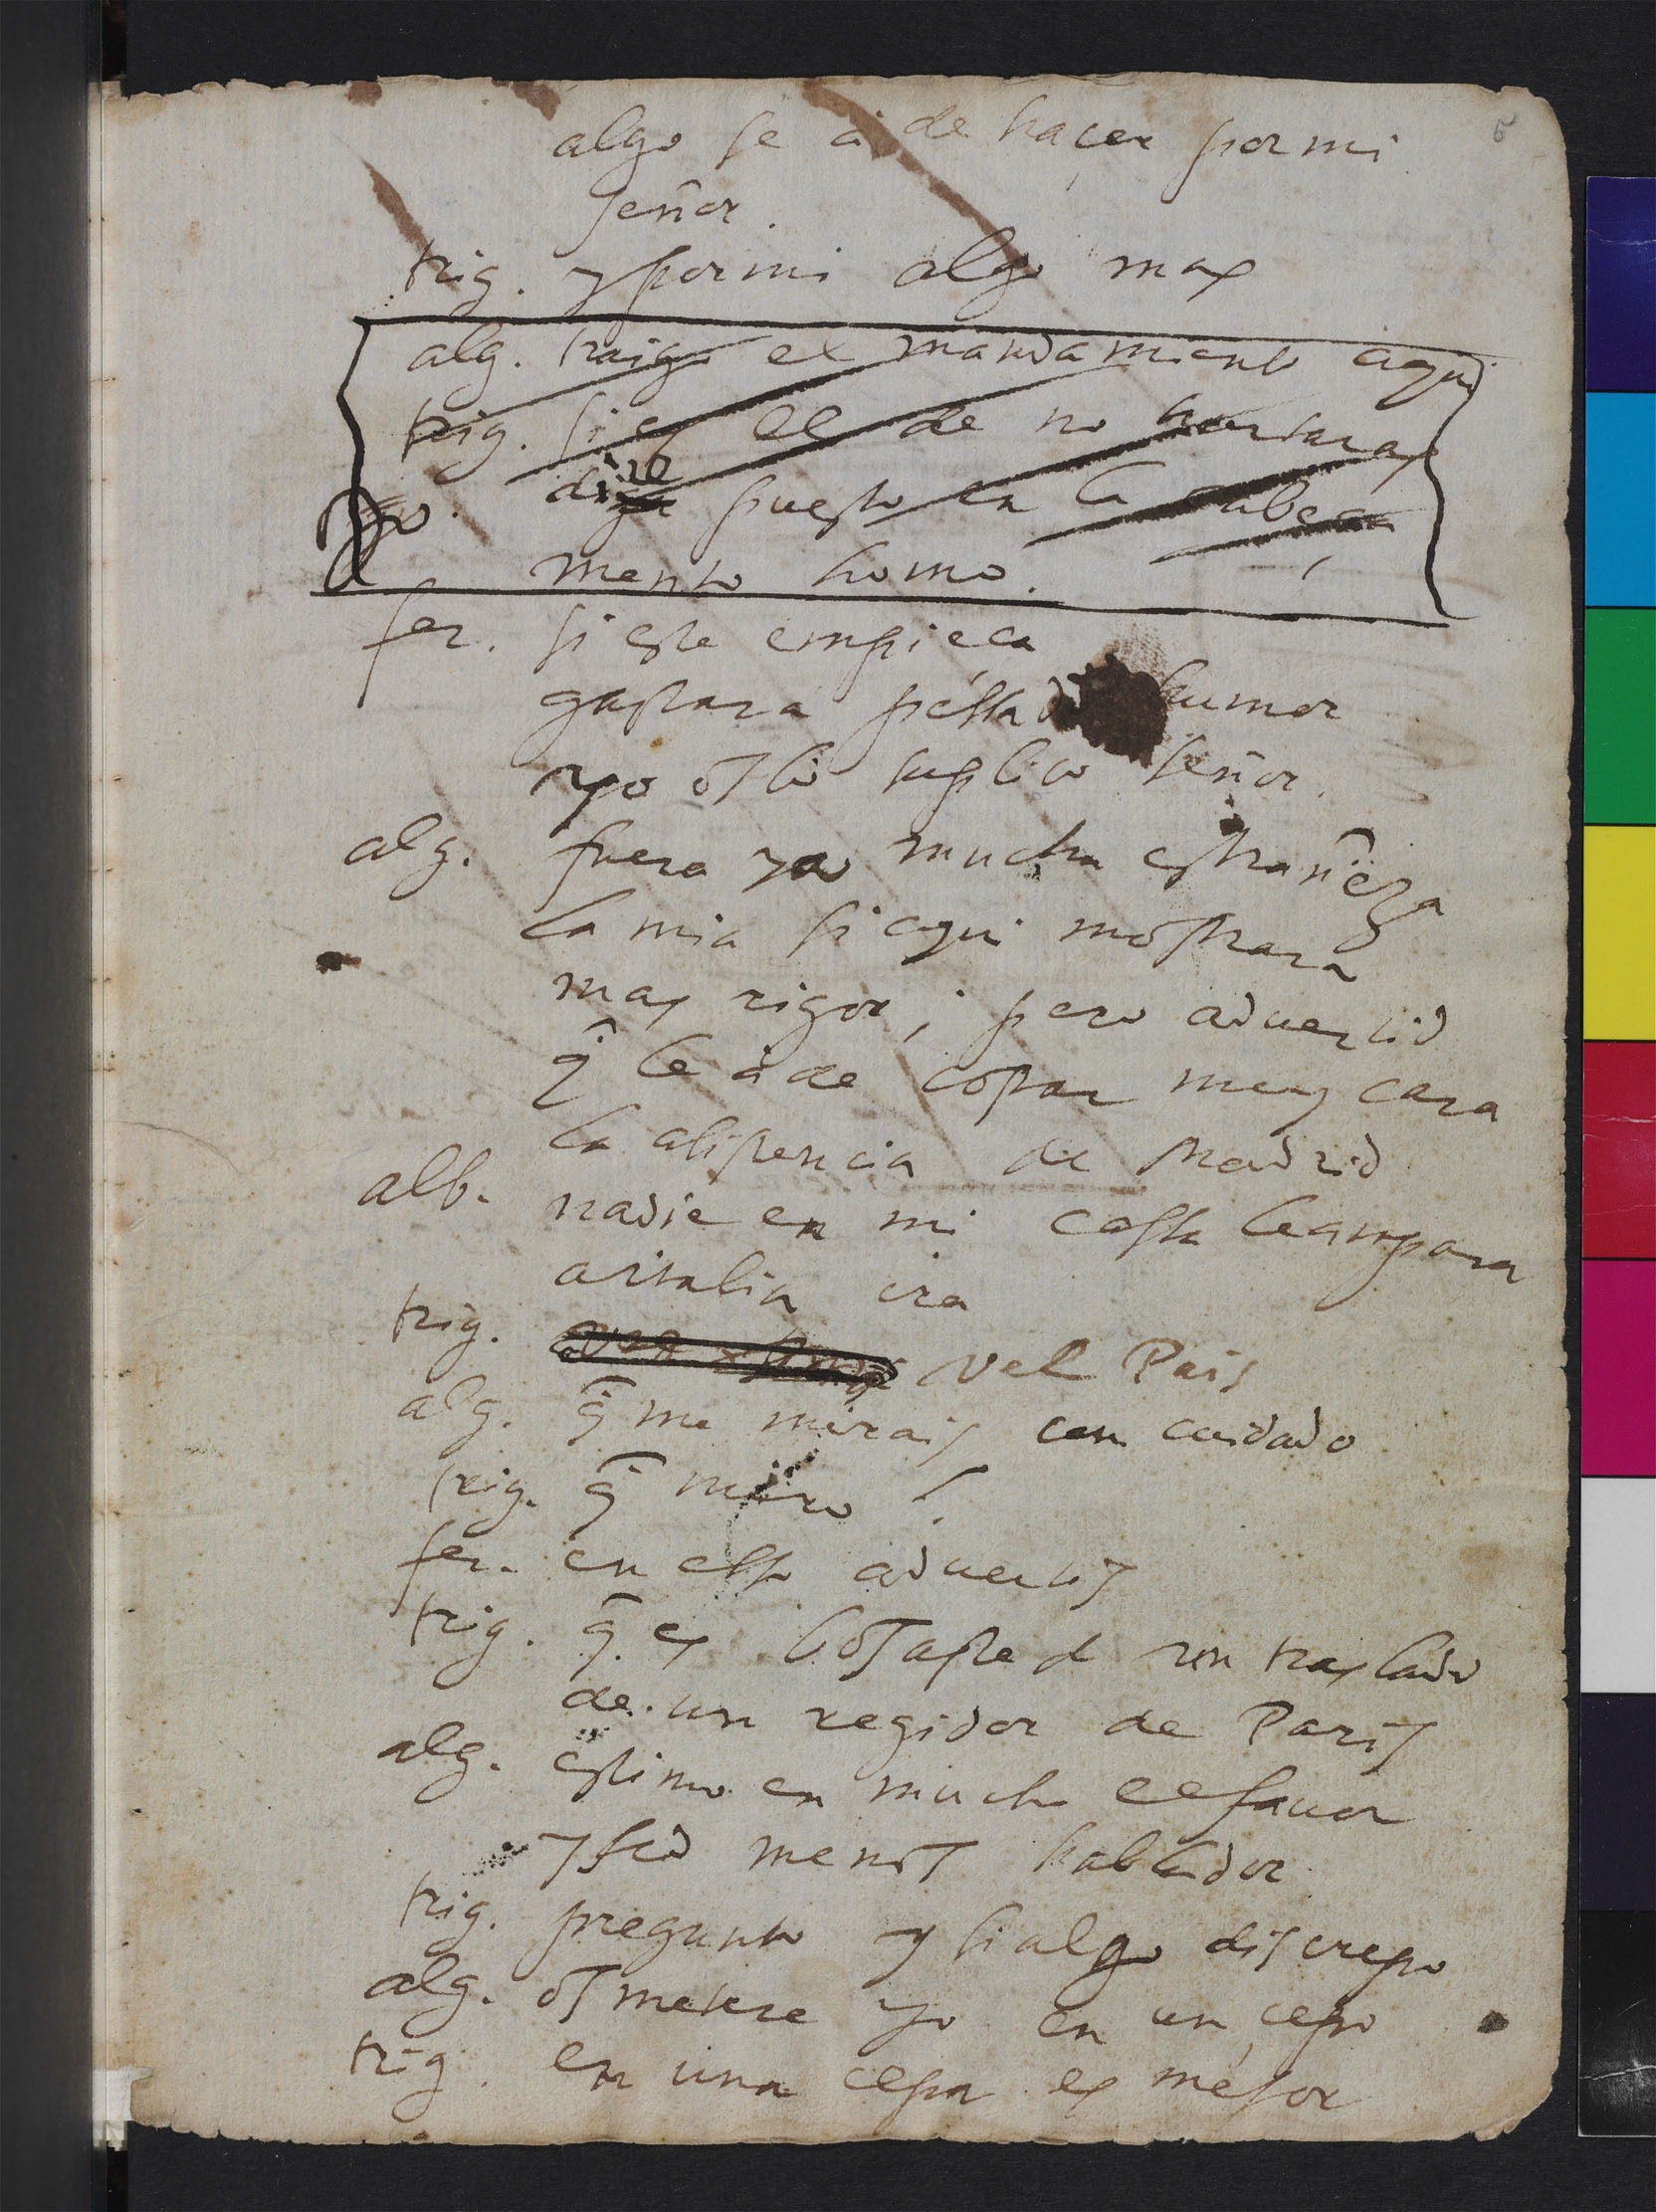 5
algo se a de haçer por mi
señor.
trig. y por mi algo mas
alg. traigo el mandamiento aqui
trig. si es el de no hurtaras
dire puesto en la cabeça
no.
mento homo.
fer. si este empieça
gastara pessado humor
yo os lo suplico señor.
alg. fuera ya mucha estrañeza
la mia si aqui mostrara
mas rigor; pero aduertid
q̃ le a de costar muy cara
la asistencia de Madrid
alb. nadie en mi cassa le ampara
a italia ira
trig. vel Pais
alg. q̃ me mirais con cuidado
trig. q̃ miro?
fer. en esso aduertis
trig. q̃ es bosaste d un traslado
de un regidor de Paris
alg. estimo en mucho el fauor
y sed menos hablador.
trig. pregunto y si algo discrepo
alg. os metere yo en un cepo
trig. en una cepa es mejor